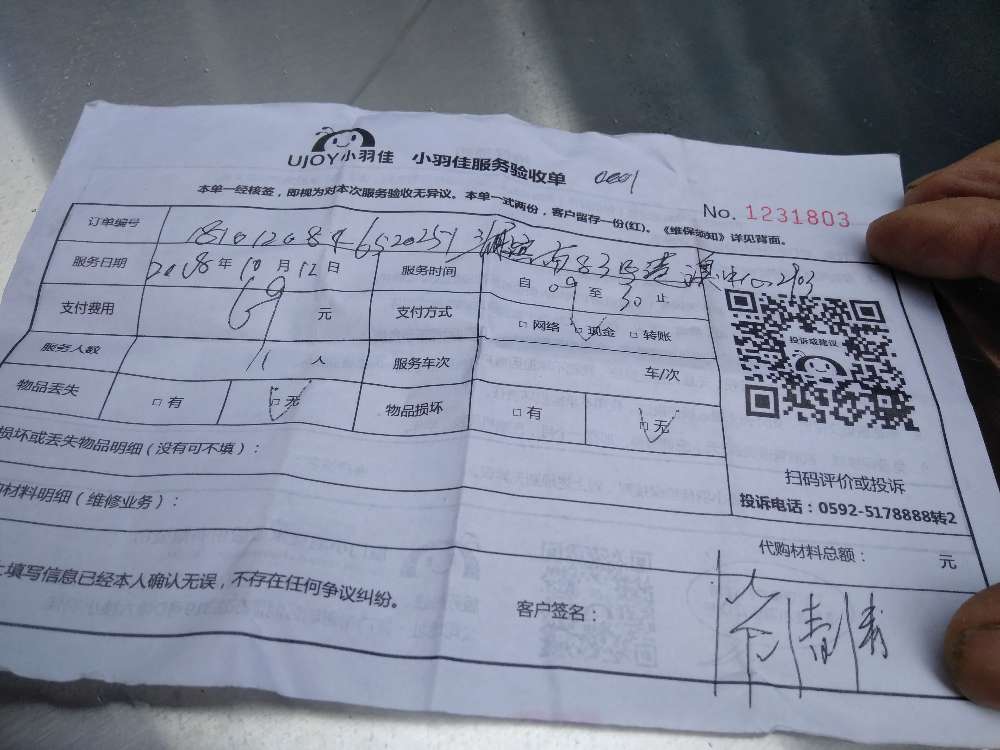 UJOY小羽佳 小羽佳服务验收单
No. 1231803
本单一经核签，即视为对本次服务验收无异议。本单一式两份，客户留存一份(红)。《维保须知》详见背面。
订单编号 181012084652025
服务日期 2018年10月12日 服务时间 自 09 至 30 止
支付费用 69 元 支付方式 □网络 □现金 □转账
服务人数 1 人 服务车次 车/次
物品丢失 □有 □无 物品损坏 □有 □无
投诉或建议
损坏或丢失物品明细(没有可不填)：
扫码评价或投诉
材料明细(维修业务)：
投诉电话：0592-5178888转2
代购材料总额： 元
填写信息已经本人确认无误，不存在任何争议纠纷。
客户签名：